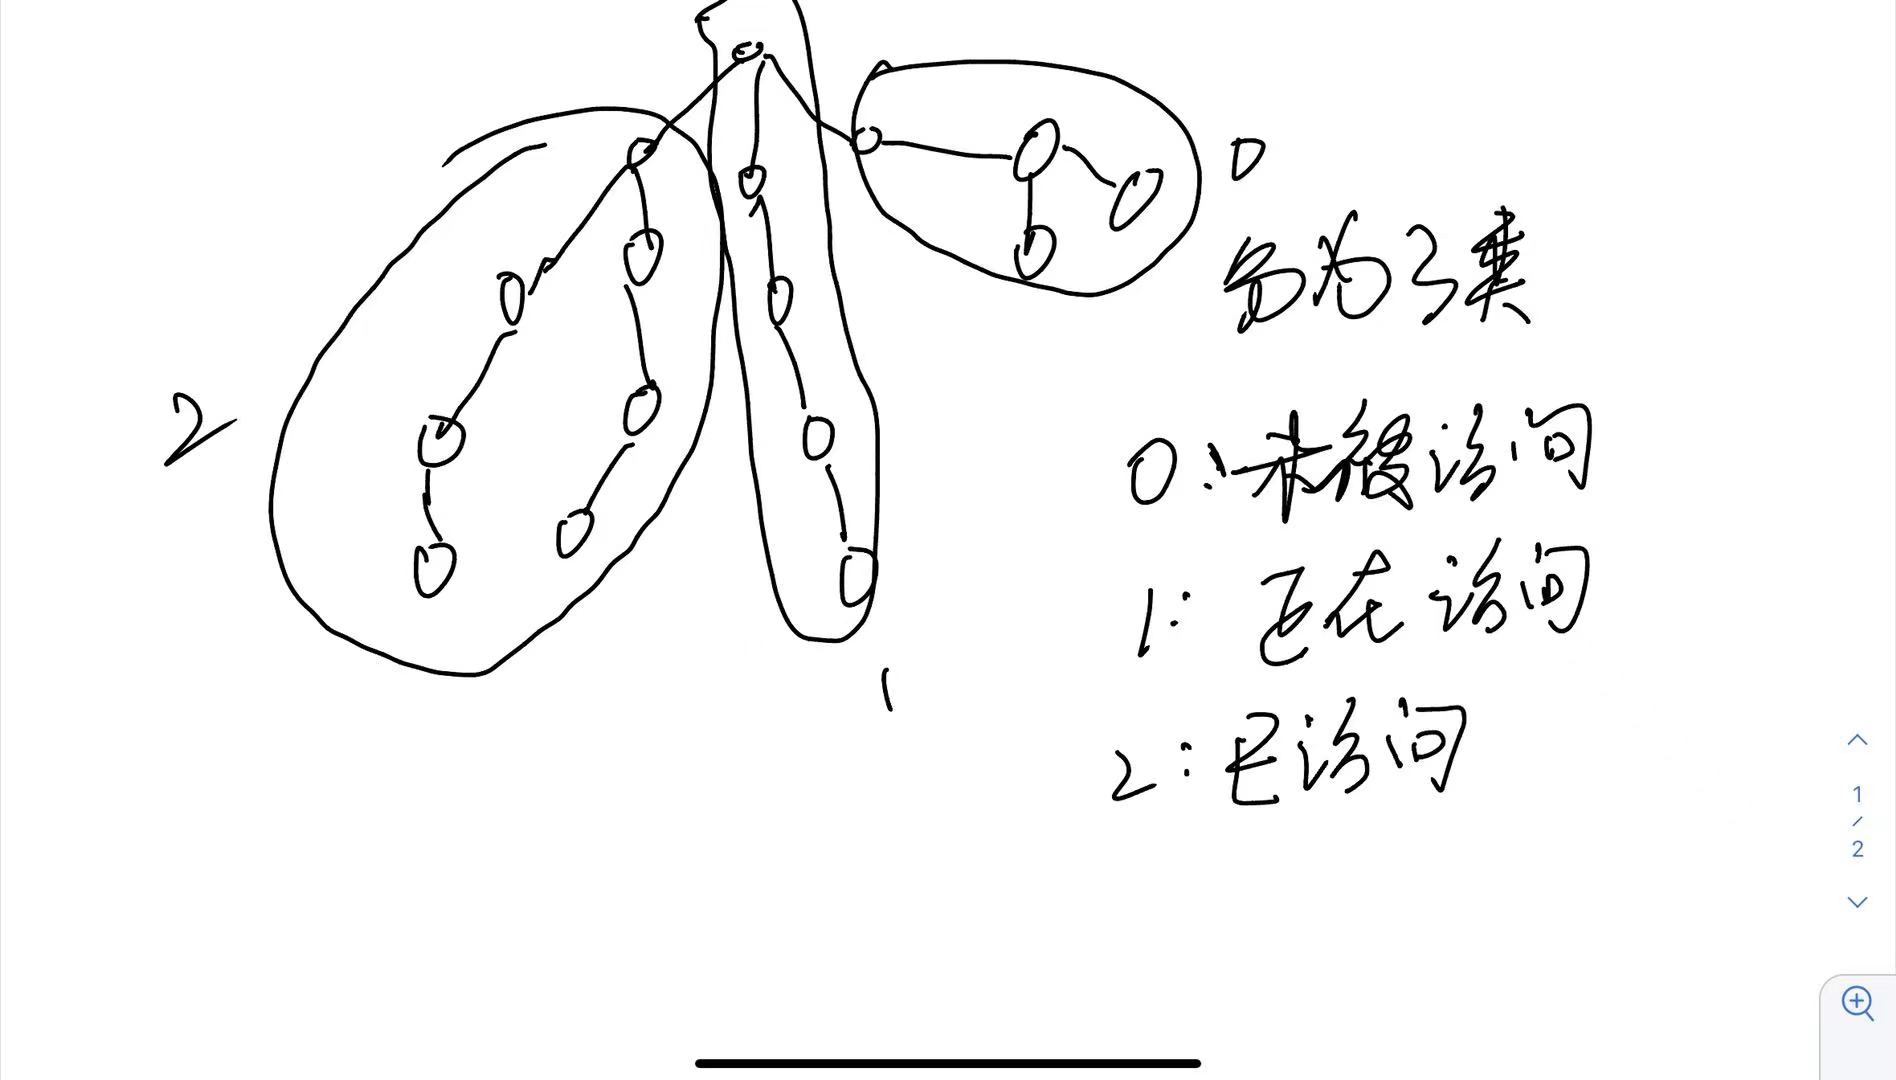 0
分为3类
2
0:未被访问
1:正在访问
1
2:已访问
1
/
2